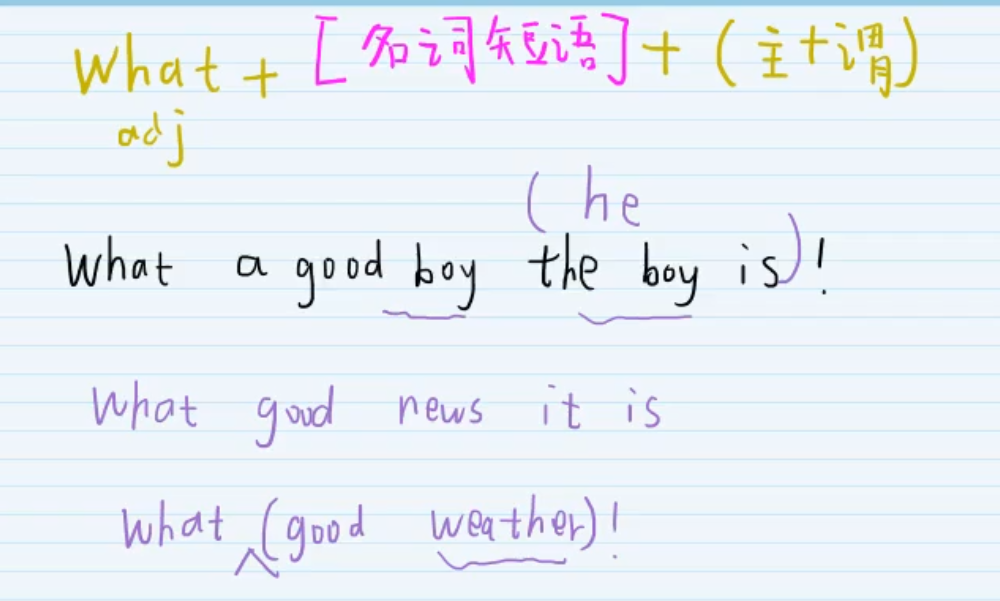 What + [名词短语] + (主+谓)
adj
(he
What a good boy the boy is)!
What good news it is
What (good weather)!